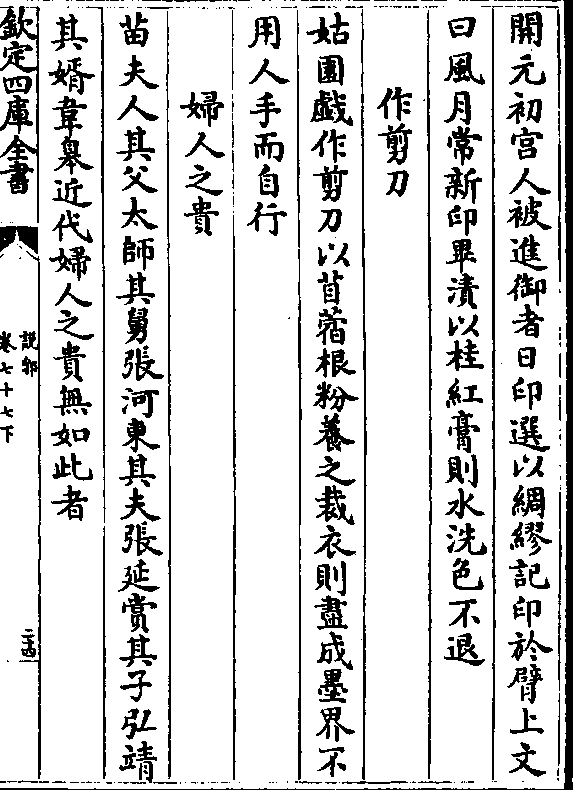 開元初宫人被進御者日印選以綢繆記印於臂上文
曰風月常新印畢漬以桂紅膏則水洗色不退
作剪刀
姑園戯作剪刀以苜蓿根粉養之裁衣則盡成墨界不
用人手而自行
婦人之貴
苗夫人其父太師其舅張河東其夫張延賞其子弘靖
其婿韋臯近代婦人之貴無如此者
欽定四庫全書
説郛
卷七十七下
二十四